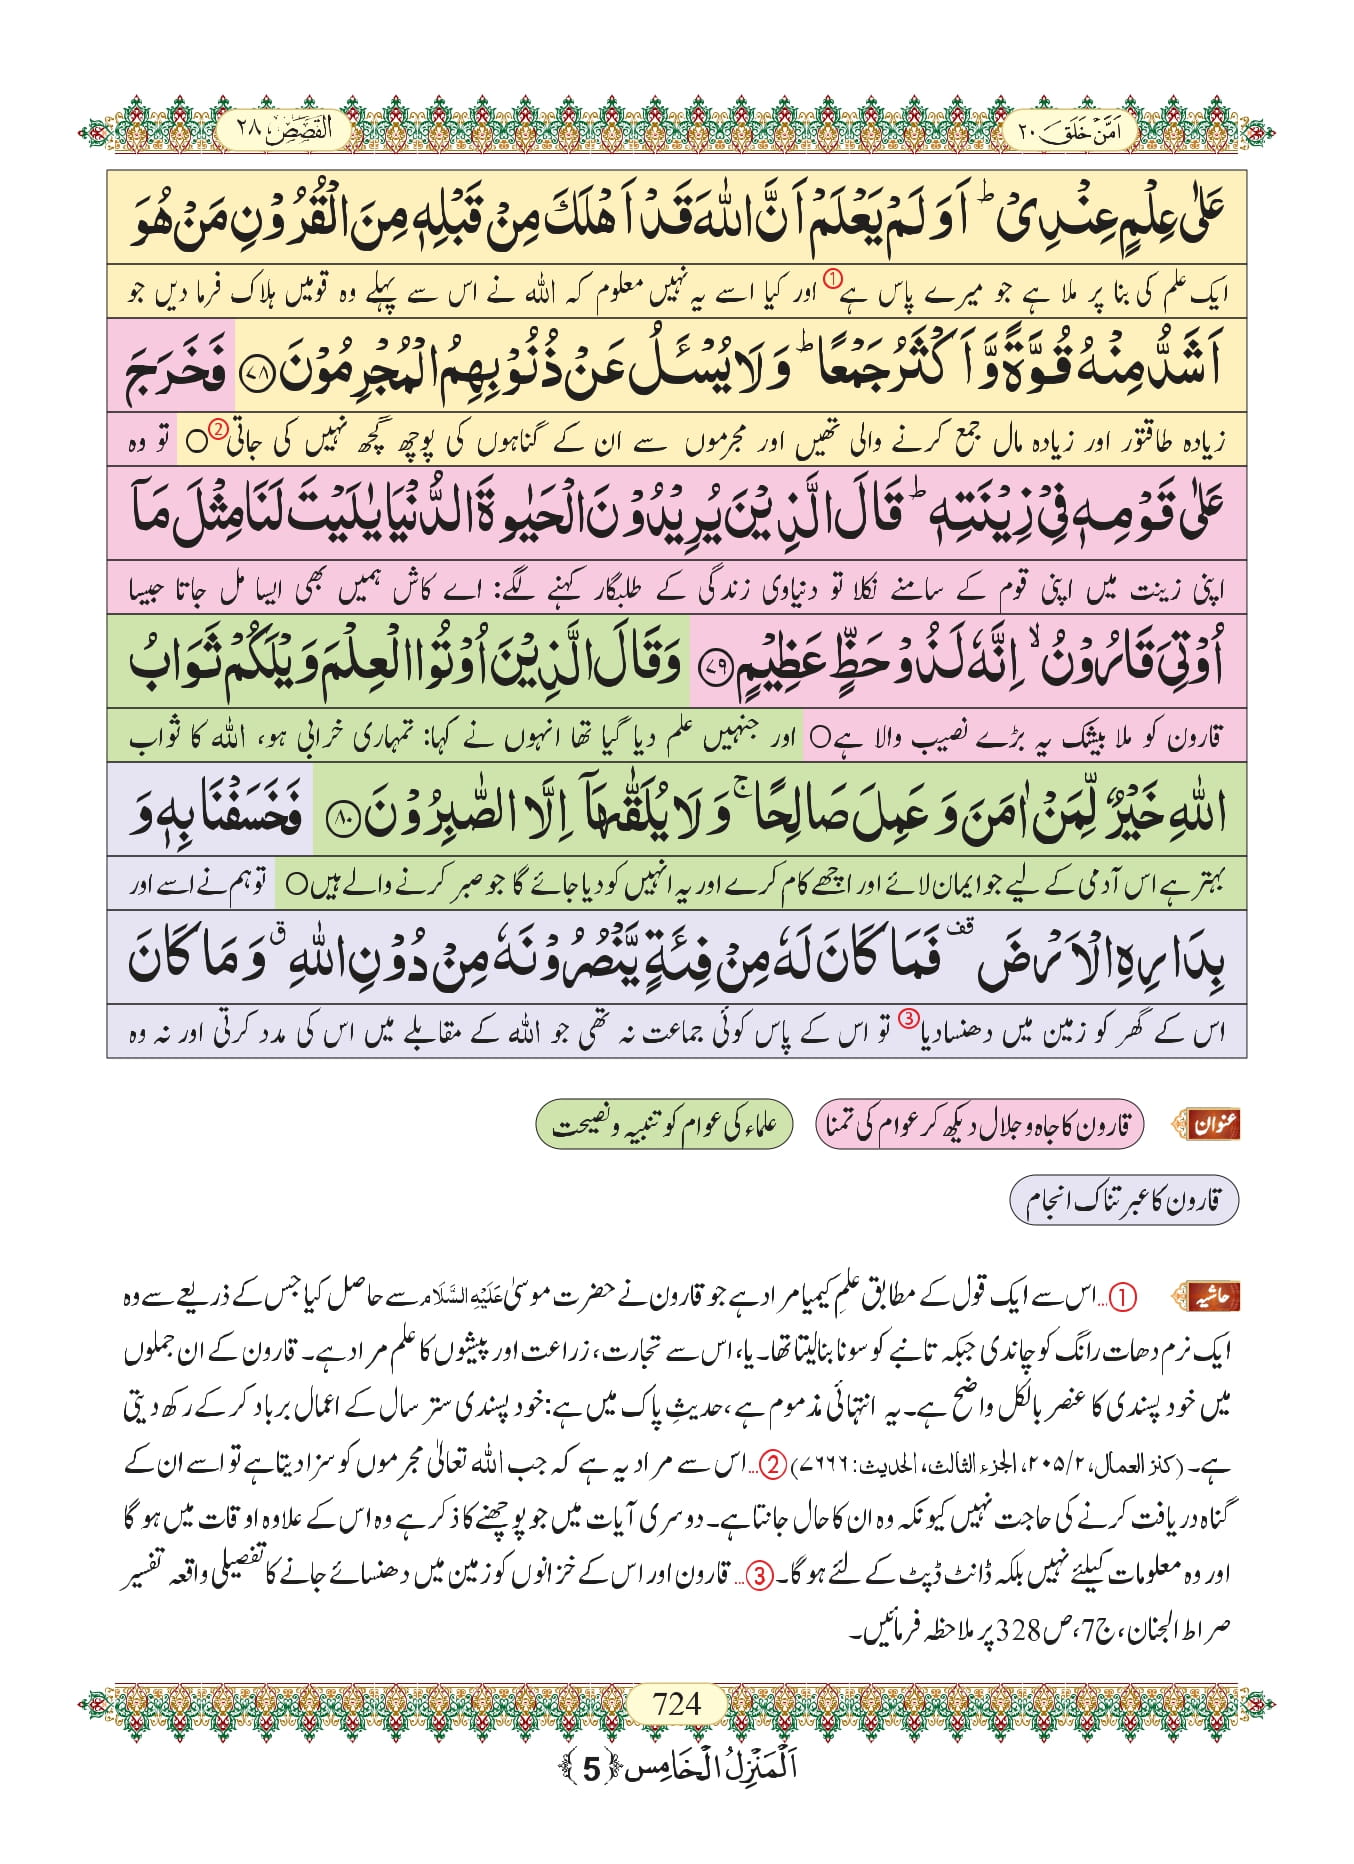 اَمَّنْ خَلَقَ ۲۰
القَصَص ۲۸
عَلٰى عِلْمٍ عِنْدِیْؕ اَوَ لَمْ یَعْلَمْ اَنَّ اللّٰهَ قَدْ اَهْلَكَ مِنْ قَبْلِهٖ مِنَ الْقُرُوْنِ مَنْ هُوَ
ایک علم کی بنا پر ملا ہے جو میرے پاس ہے① اور کیا اسے یہ نہیں معلوم کہ اللہ نے اس سے پہلے وہ قومیں ہلاک فرما دیں جو
اَشَدُّ مِنْهُ قُوَّةً وَّ اَكْثَرُ جَمْعًاؕ وَ لَا یُسْــٴَـلُ عَنْ ذُنُوْبِهِمُ الْمُجْرِمُوْنَ ﴿۷۸﴾ فَخَرَجَ
زیادہ طاقتور اور زیادہ مال جمع کرنے والی تھیں اور مجرموں سے ان کے گناہوں کی پوچھ گچھ نہیں کی جاتی② ○ تو وہ
عَلٰى قَوْمِهٖ فِیْ زِیْنَتِهٖؕ قَالَ الَّذِیْنَ یُرِیْدُوْنَ الْحَیٰوةَ الدُّنْیَا یٰلَیْتَ لَنَا مِثْلَ مَاۤ
اپنی زینت میں اپنی قوم کے سامنے نکلا تو دنیاوی زندگی کے طلبگار کہنے لگے: اے کاش ہمیں بھی ایسا مل جاتا جیسا
اُوْتِیَ قَارُوْنُۙ اِنَّهٗ لَذُوْ حَظٍّ عَظِیْمٍ ﴿۷۹﴾ وَ قَالَ الَّذِیْنَ اُوْتُوا الْعِلْمَ وَیْلَكُمْ ثَوَابُ
قارون کو ملا بیشک یہ بڑے نصیب والا ہے○ اور جنہیں علم دیا گیا تھا انہوں نے کہا: تمہاری خرابی ہو، اللہ کا ثواب
اللّٰهِ خَیْرٌ لِّمَنْ اٰمَنَ وَ عَمِلَ صَالِحًاۚ وَ لَا یُلَقّٰىهَاۤ اِلَّا الصّٰبِرُوْنَ ﴿۸۰﴾ فَخَسَفْنَا بِهٖ وَ
بہتر ہے اس آدمی کے لیے جو ایمان لائے اور اچھے کام کرے اور یہ انہیں کو دیا جائے گا جو صبر کرنے والے ہیں○ تو ہم نے اسے اور
بِدَارِهِ الْاَرْضَ ۫ فَمَا كَانَ لَهٗ مِنْ فِئَةٍ یَّنْصُرُوْنَهٗ مِنْ دُوْنِ اللّٰهِۗ وَ مَا كَانَ
اس کے گھر کو زمین میں دھنسادیا③ تو اس کے پاس کوئی جماعت نہ تھی جو اللہ کے مقابلے میں اس کی مدد کرتی اور نہ وہ
عنوان قارون کا جاہ و جلال دیکھ کر عوام کی تمنا علماء کی عوام کو تنبیہ و نصیحت
قارون کا عبرتناک انجام
حاشیہ ①...اس سے ایک قول کے مطابق علمِ کیمیا مراد ہے جو قارون نے حضرت موسیٰ عَلَیْہِ السَّلَام سے حاصل کیا جس کے ذریعے سے وہ
ایک نرم دھات رانگ کو چاندی جبکہ تانبے کو سونا بنالیتا تھا۔ یا، اس سے تجارت، زراعت اور پیشوں کا علم مراد ہے۔ قارون کے ان جملوں
میں خود پسندی کا عنصر بالکل واضح ہے۔ یہ انتہائی مذموم ہے، حدیثِ پاک میں ہے: خود پسندی ستر سال کے اعمال برباد کر کے رکھ دیتی
ہے۔ (کنز العمال، ۲/۲۰۵، الجزء الثالث، الحدیث: ۷۶۶۶) ②...اس سے مراد یہ ہے کہ جب اللہ تعالیٰ مجرموں کو سزا دیتا ہے تو اسے ان کے
گناہ دریافت کرنے کی حاجت نہیں کیونکہ وہ ان کا حال جانتا ہے۔ دوسری آیات میں جو پوچھنے کا ذکر ہے وہ اس کے علاوہ اوقات میں ہو گا
اور وہ معلومات کیلئے نہیں بلکہ ڈانٹ ڈپٹ کے لئے ہو گا۔ ③... قارون اور اس کے خزانوں کو زمین میں دھنسائے جانے کا تفصیلی واقعہ تفسیر
صراط الجنان، ج7، ص328 پر ملاحظہ فرمائیں۔
724
اَلْمَنْزِلُ الْخَامِس ﴿5﴾